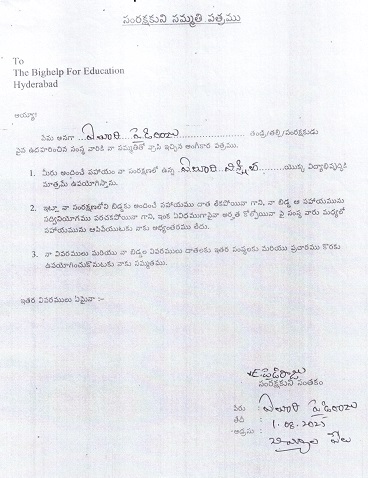 సంరక్షకుని సమ్మతి పత్రము
To
The Bighelp For Education
Hyderabad
అయ్యా!
నేను అనగా ఏలూరి పైడిరాజు తండ్రి/తల్లి/సంరక్షకుడు
పైన ఉదహరించిన సంస్థ వారికి నా సమ్మతితో వ్రాసి ఇచ్చిన అంగీకార పత్రము.
1. మీరు అందించే సహాయం నా సంరక్షణలో ఉన్న ఏలూరి యొక్క విద్యాభివృద్ధికి
మాత్రమే ఉపయోగిస్తాను.
2. ఇట్లా నా సంరక్షణలోని బిడ్డకు అందించే సహాయము దాత లేకపోయినా గాని, నా బిడ్డ ఆ సహాయమును
సద్వినియోగము పరచకపోయినా గాని, ఇంక ఏవిధముగానైనా అర్హత కోల్పోయినా పై సంస్థ వారు మధ్యలో
సహాయమును ఆపివేయుటకు నాకు అభ్యంతరము లేదు.
3. నా వివరములు మరియు నా బిడ్డల వివరములు దాతలకు ఇతర సంస్థలకు మరియు ప్రచారము కొరకు
ఉపయోగించుకొనుటకు నాకు సమ్మతము.
ఇతర వివరములు ఏమైనా :-
E. పైడిరాజు
సంరక్షకుని సంతకం
పేరు : ఏలూరి పైడిరాజు
తేదీ : 1.08.2025
అడ్రసు :